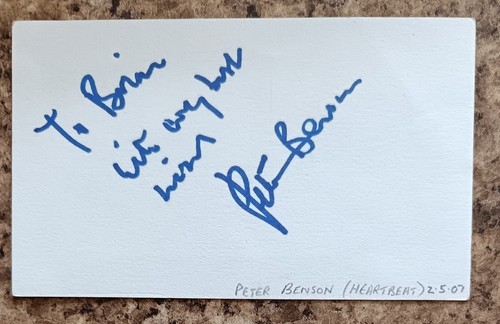 To Brian
with every best
wishes
Peter Benson
PETER BENSON (HEARTBEAT) 2.5.07